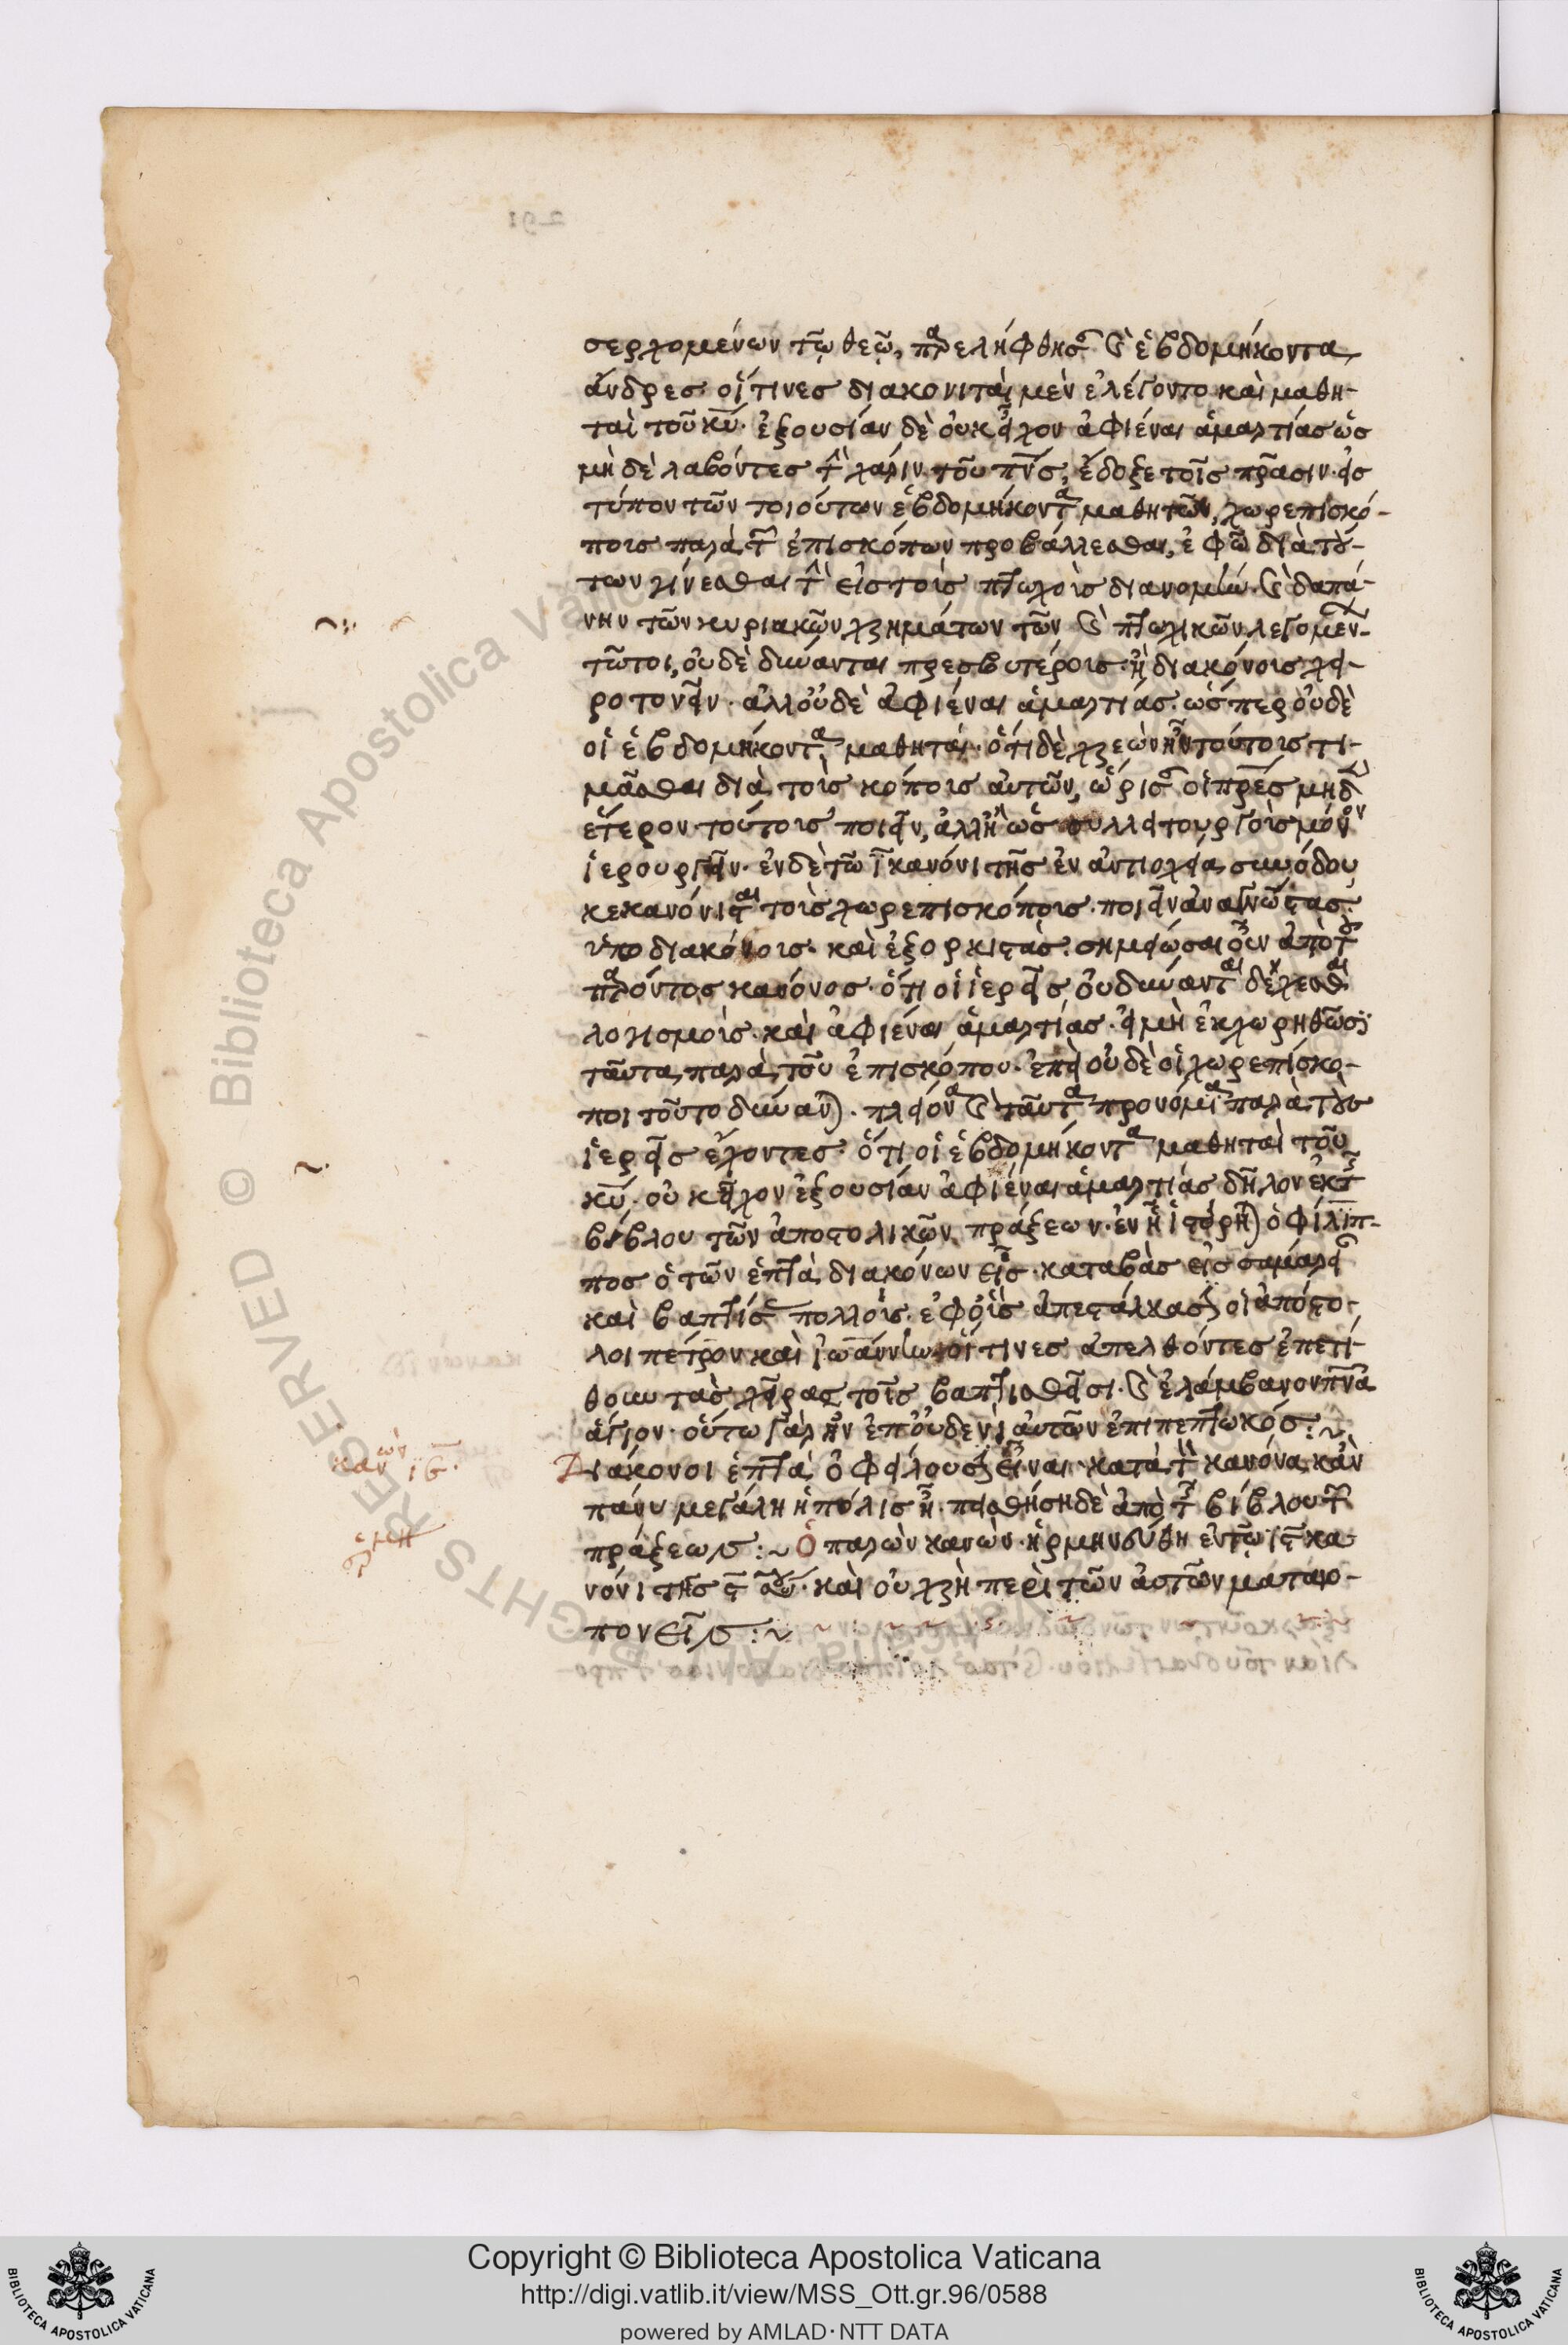 σερχομένων τῷ θεῷ, παρελήφθησαν καὶ ἑβδομήκοντα
ἄνδρες οἵτινες διακονιταὶ μὲν ἐλέγοντο καὶ μαθη-
ταὶ τοῦ κ̅υ̅· ἐξουσίαν δὲ οὐκ εἶχον ἀφιέναι ἁμαρτίας ὡς
μὴ δὲ λαβόντες τὴν χάριν τοῦ π̅ν̅ς̅, ἔδοξε τοῖς π̅ρ̅άσιν· εἰς
τύπον τῶν τοιούτων ἑβδομήκοντα μαθητῶν, χωρεπισκό-
ποις παρὰ τῶν ἐπισκόπων προβάλλεσθαι, ἐφῶ διὰ τού-
των γίνεσθαι τὴν εἰς τοῖς πτωχοῖς διανομὴν· καὶ δαπά-
νην τῶν κυριακῶν χρημάτων τῶν καὶ πτωχικῶν λεγομένων-
τῶτοι, οὐδὲ δύνανται πρεσβυτέροις· ἢ διακόνοις χει-
ροτονεῖν· ἀλλ' οὐδὲ ἀφιέναι ἁμαρτίας· ὥσπερ οὐδὲ
οἱ ἑβδομήκοντα μαθηταί· ὅτι δὲ χρεὼν ἦν τούτοις τι-
μᾶσθαι διὰ τοῖς κόποις αὐτῶν, ὥρισαν οἱ π̅ρ̅ε̅ς̅ μηδὲν
ἕτερον τούτοις ποιεῖν, ἀλλ' ἢ ὡς συλλειτουργοῖς μόνον
ἱερουργεῖν· ἐν δὲ τῶ ι̅ κανόνι τῆς ἐν ἀντιοχεία συνόδου
κεκανόνισται τοῖς χωρεπισκόποις· ποιεῖν ἀναγνώστας·
ὑποδιακόνοις· καὶ ἐξορκιστὰς· σημείωσαι οὖν ἀπὸ τοῦ
παρόντος κανόνος· ὅτι οἱ ἱερεῖς οὐ δύνανται δέχεσθαι
λογισμοὶς· καὶ ἀφιέναι ἁμαρτίας· εἰ μὴ ἐκχωρηθῶσι
ταῦτα παρὰ τοῦ ἐπισκόπου· ἐπεὶ οὐδὲ οἱ χωρεπίσκο-
ποι τοῦτο δύνανται· πλείονα καὶ ταῦτα προνόμια παρὰ τοὺς
ἱερεῖς ἔχοντες· ὅτι οἱ ἑβδομήκοντα μαθηταὶ τοῦ
κ̅υ̅· οὐκ εἶχον ἐξουσίαν ἀφιέναι ἁμαρτίας δῆλον ἐκ τῆς
βίβλου τῶν ἀποστολικῶν πράξεων· ἐν ἧ ἱστόρηται ὁ φίλιπ-
πος ὁ τῶν ἑπτὰ διακόνων εἷς· καταβὰς εἰς σαμάρειαν
καὶ βαπτίσας πολλοῖς· ἐφ' οἷς ἀπεστάλκασιν οἱ ἀπόστο-
λοι πέτρον καὶ ἰωάννην οἵτινες ἀπελθόντες ἐπετί-
θουν τὰς χεῖρας τοῖς βαπτισθεῖσι· καὶ ἐλάμβανον π̅ν̅α̅
ἅγιον· οὕτω γὰρ ἦν ἐπ' οὐδενὶ αὐτῶν ἐπιπεπτωκός:~
κανὼν ιε̅·
Διάκονοι ἑπτὰ ὀφείλουσιν εἶναι κατὰ τὸν κανόνα κἂν
πάνυ μεγάλη ἡ πόλις ἦ· πεισθήση δὲ ἀπὸ τῆς βίβλου τῶν
ἑρμη
πράξεων:~ Ὁ παρὼν κανὼν· ἡρμηνεύθη ἐν τῶ ι̅ς̅ κα-
νόνι τῆς ϛ̅ συνόδου· καὶ οὐ χρὴ περὶ τῶν αὐτῶν